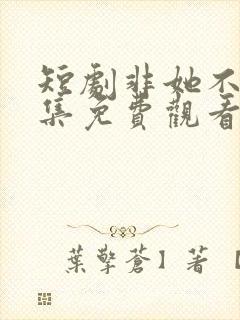 短劇非她不
集免費觀看
葉擎蒼】著【